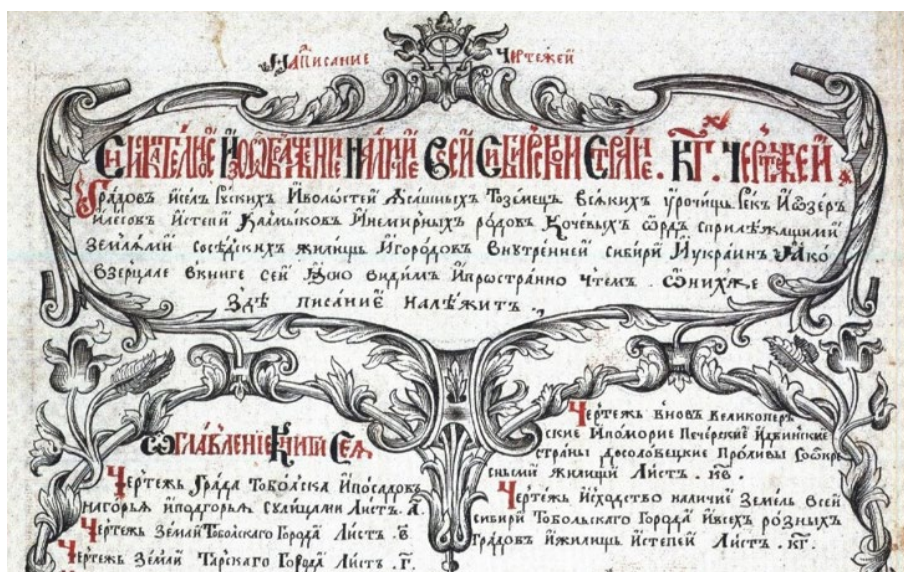 Написание Чертежей
Сискателное Изображение Наличие Всей Сибирской Стране. КГ. Чертежей
Градовъ и селъ Руских и волостей Ясашных Тоземецъ всяких урочищь рек и озеръ
и лесовъ и степи Калмыков и немирныхъ родовъ Кочевых ѡрдъ с прилежащими
землями соседских жилищь и городов внутренней сибири и украинъ Яко
в зерцале в книге сей ясно видимъ и пространно чтем. ѡ нихже
зде писание належитъ.
ѡглавление Книги Сея
Чертежь Града Тоболска и посадовъ
нагорья и подгорья с улицами Листъ. а҃.
Чертежь земли Тоболскаго Города Листъ. в҃
Чертежь земли Тарскаго Города Листъ. г҃.
Чертежь вновь великоперм
ские и поморие Печерские и двинские
страны до соловецкие Проливы с окре
сными жилищи Листъ. кв҃.
Чертежь и сходство наличии земель всей
сибири Тобольскаго Города и всех розныхъ
градовъ и жилищь и степей Листъ. кг҃.